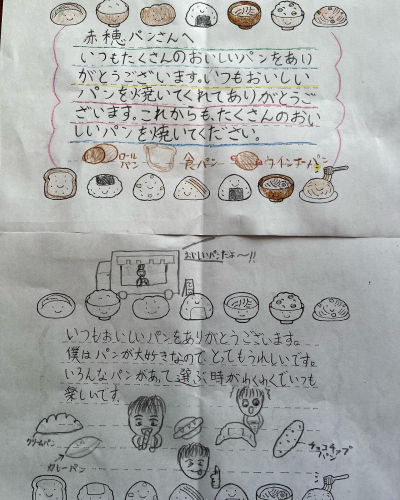 赤穂パンさんへ
いつもたくさんのおいしいパンをあり
がとうございます。いつもおいしい
パンを焼いてくれてありがとうご
ざいます。これからも、たくさんのおい
しいパンを焼いてください。
ロール
パン
食パン
ウインナーパン
おいしいパンだよ〜!!
いつもおいしいパンをありがとうございます。
僕はパンが大好きなので、とてもうれしいです。
いろんなパンがあって選ぶ時がわくわくでいつも
楽しいです。
クリームパン
カレーパン
チョコチップ
パン